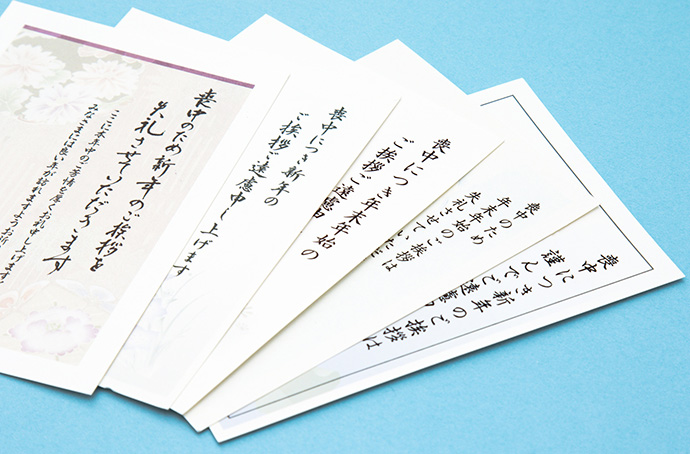 喪中のため新年のご挨拶を
失礼させていただきます
ここに本年中のご芳情を厚くお礼申し上げます
みなさまには良い年が訪れますようお祈
喪中につき新年の
ご挨拶ご遠慮申し上げます
喪中につき年末年始の
ご挨拶ご遠慮申
喪中のため
年末年始のご挨拶は
失礼させていた
喪中につき新年のご挨拶は
謹んでご遠慮